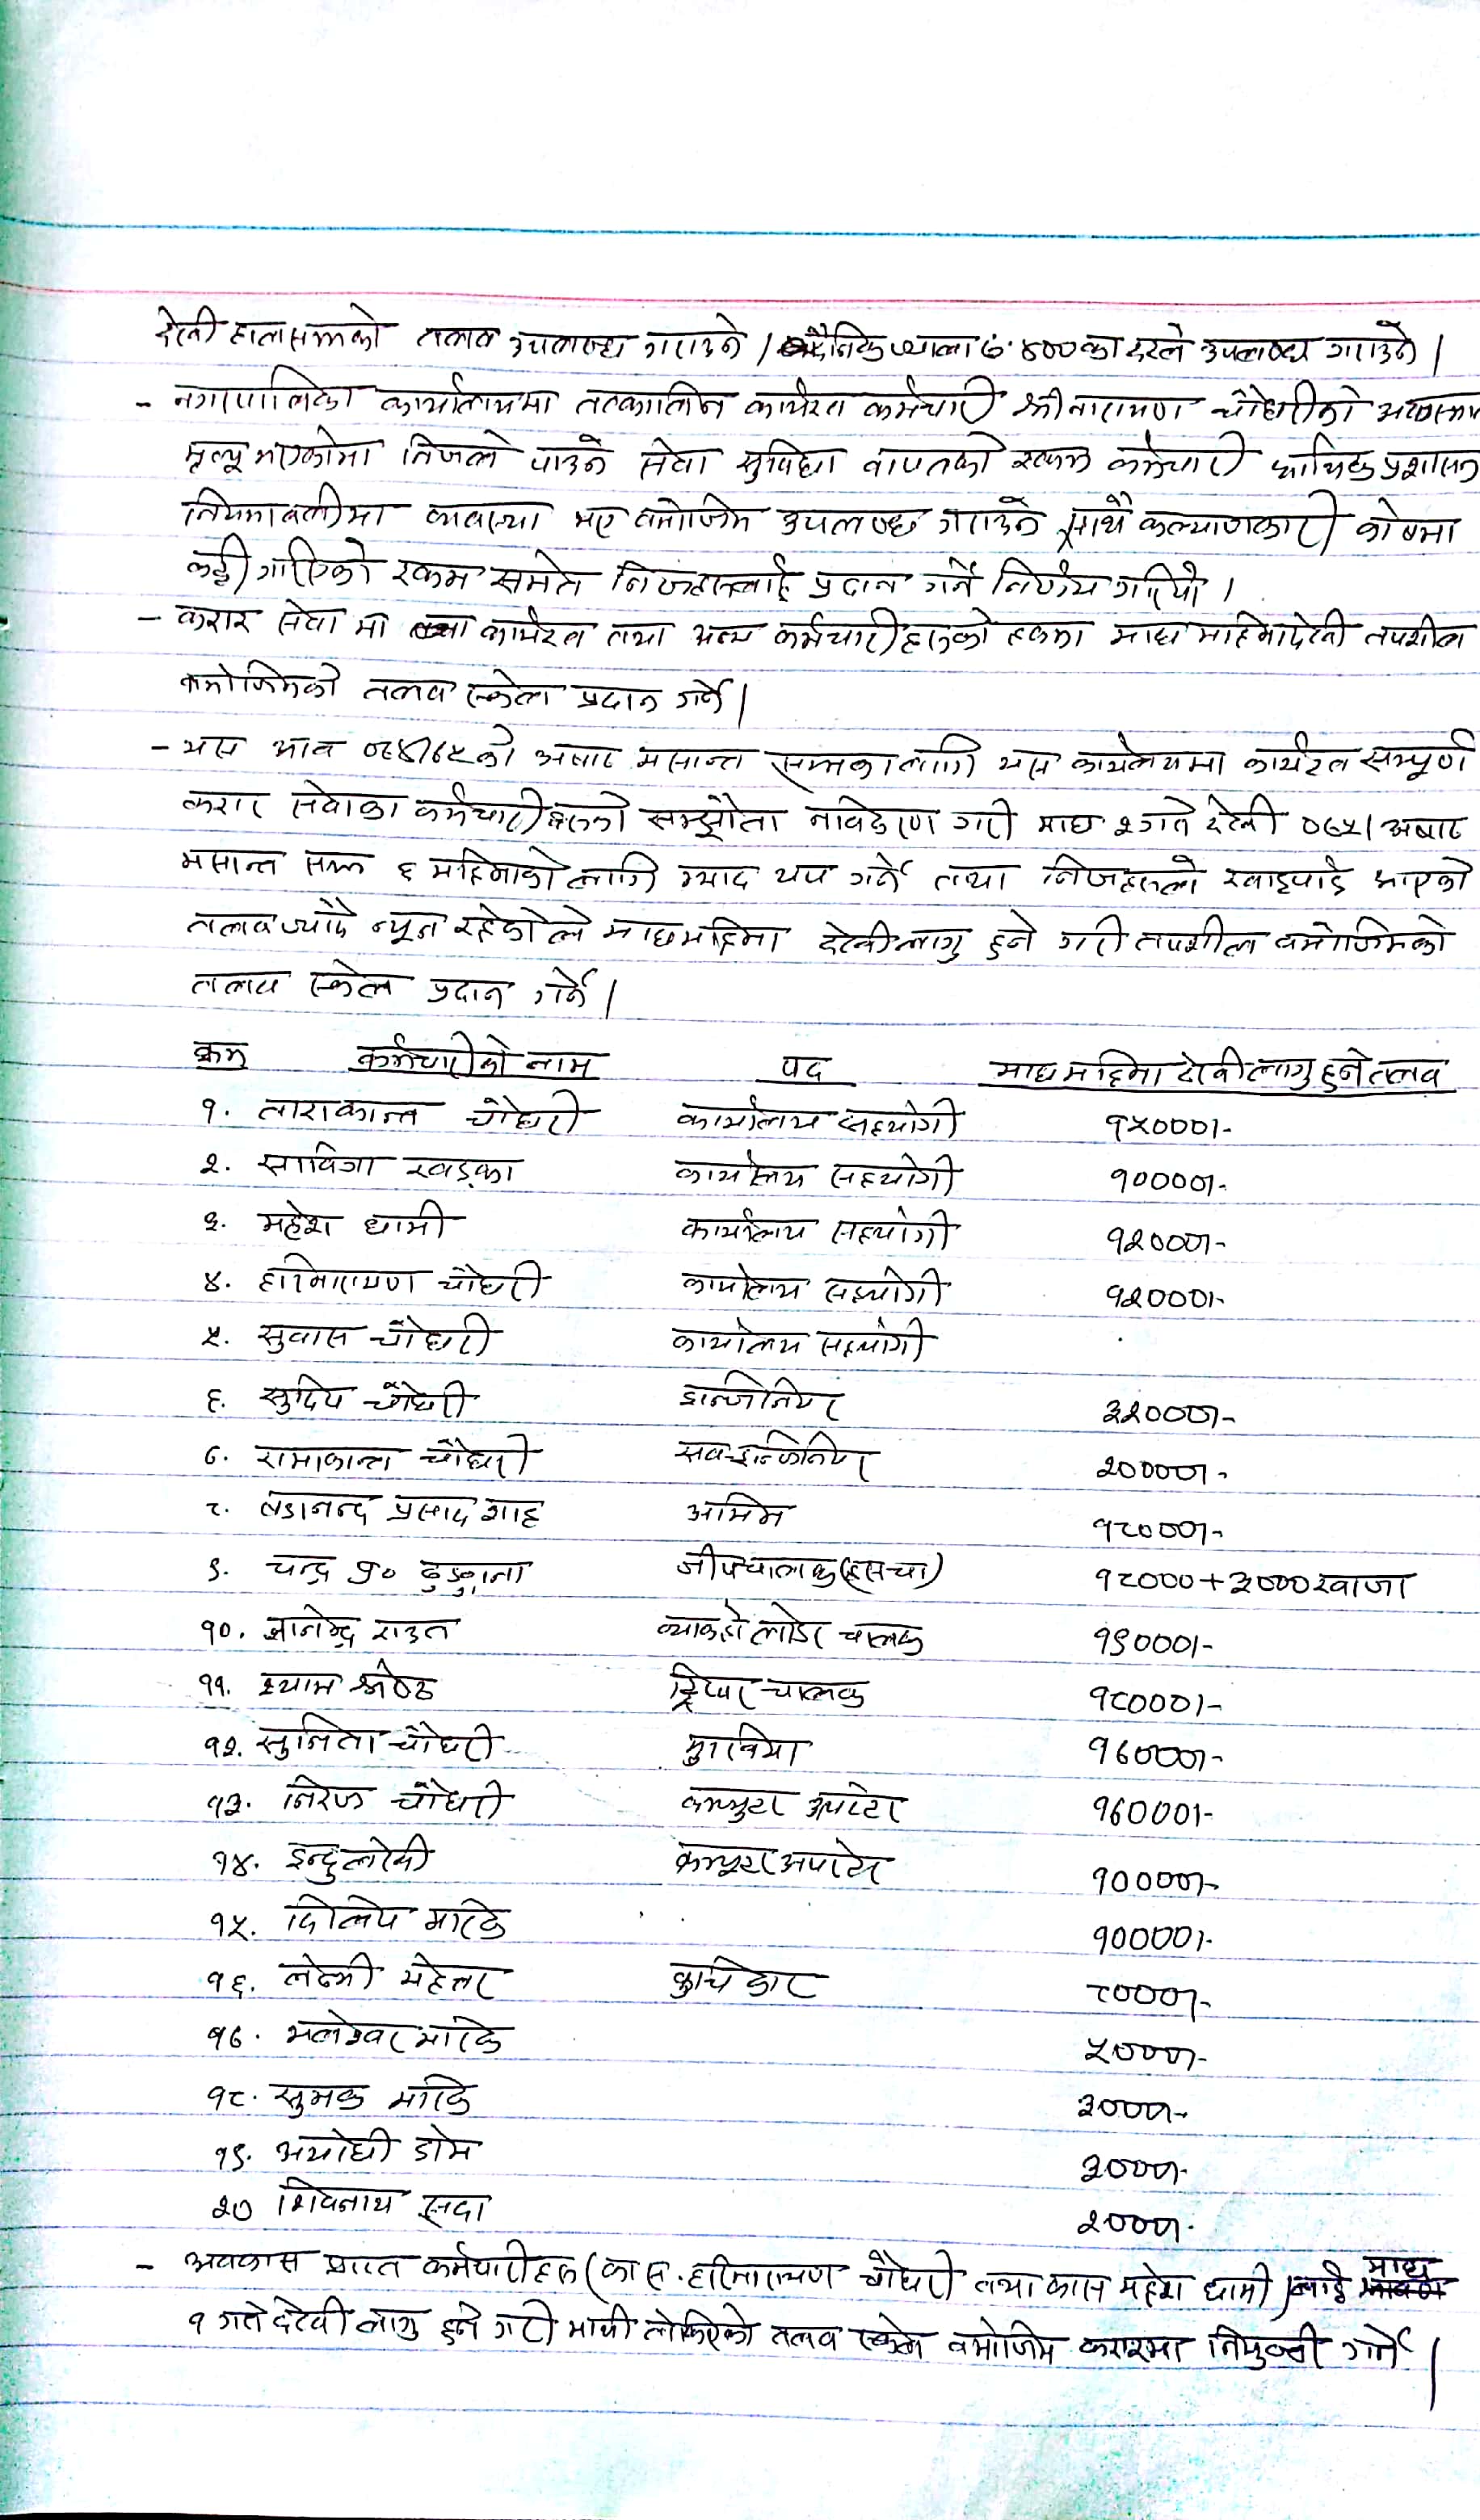 देखी हालसम्मको तलब उपलब्ध गराउने । दैनिक ज्याला रु. ४००का दरले उपलब्ध गराउने ।
- नगरपालिका कार्यालयमा तत्कालिन कार्यरत कर्मचारी श्री नारायण चौधरीको
मृत्यू भएकोमा निजले पाउने सेवा सुविधा वापतको रकम कर्मचारी आर्थिक प्रशासन
नियमावलीमा व्यवस्था भए वमोजिम उपलब्ध गराउने साथै कल्याणकारी कोषमा
कट्टी गरिएको रकम समेत निजहरुलाई प्रदान गर्ने निर्णय गरियो ।
- करार सेवा मा कार्यरत तथा अन्य कर्मचारीहरुको हकमा माघ महिनादेखी तपशील
वमोजिमको तलव स्केल प्रदान गर्ने ।
- यस आव ०७४/७५को अषाढ मसान्त सम्मका लागि यस कार्यालयमा कार्यरत सम्पूर्ण
करार सेवाका कर्मचारीहरुको सम्झौता नविकरण गरी माघ १ गते देखी ०७५। अषाढ
मसान्त सम्म ६ महिनाको लागि म्याद थप गर्ने तथा निजहरुले खाइपाई आएको
तलव ज्यादै न्यून रहेकोले माघ महिना देखी लागु हुने गरी तपशील वमोजिमको
तलव स्केल प्रदान गर्ने ।
क्रम कर्मचारीको नाम पद माघ महिना देखी लागु हुने तलव
१. ताराकान्त चौधरी कार्यालय सहयोगी १५०००।-
२. सावित्रा खड्का कार्यालय सहयोगी १००००।-
३. महेश धामी कार्यालय सहयोगी १२०००।-
४. हरिनारायण चौधरी कार्यालय सहयोगी १२०००।-
५. सुवास चौधरी कार्यालय सहयोगी
६. सुदिप चौधरी इन्जिनियर ३२०००।-
७. रामाकान्त चौधरी सव-इन्जिनियर २००००।-
८. षडानन्द प्रसाद शाह अमिन १८०००।-
९. चन्द्र प्र० ढुङ्गाना जीपचालक (ह स चा) १८०००+३०००खाजा
१०. ज्ञानेन्द्र राउत व्याकहो लोडर चालक १९०००।-
११. श्याम श्रेष्ठ ट्रिपर चालक १८०००।-
१२. सुनिता चौधरी मुखिया १७०००।-
१३. निरज चौधरी कम्प्युटर अपरेटर १७०००।-
१४. इन्दु लोदी कम्प्युटर अपरेटर १००००।-
१५. दिलिप माझि १००००।-
१६. लक्ष्मी मेहेतर कुचिकार ८०००।-
१७. भलेश्वर माझि ५०००।-
१८. सुमक माझि ३०००।-
१९. अयोधी डोम ३०००।-
२० शिवनाथ सदा २०००।-
- अवकास प्राप्त कर्मचारीहरु (का स. हरिनारायण चौधरी तथा कास महेश धामी) लाई माघ
१ गते देखी लागु हुने गरी माथी तोकिएको तलव स्केल वमोजिम करारमा नियुक्ती गर्ने ।